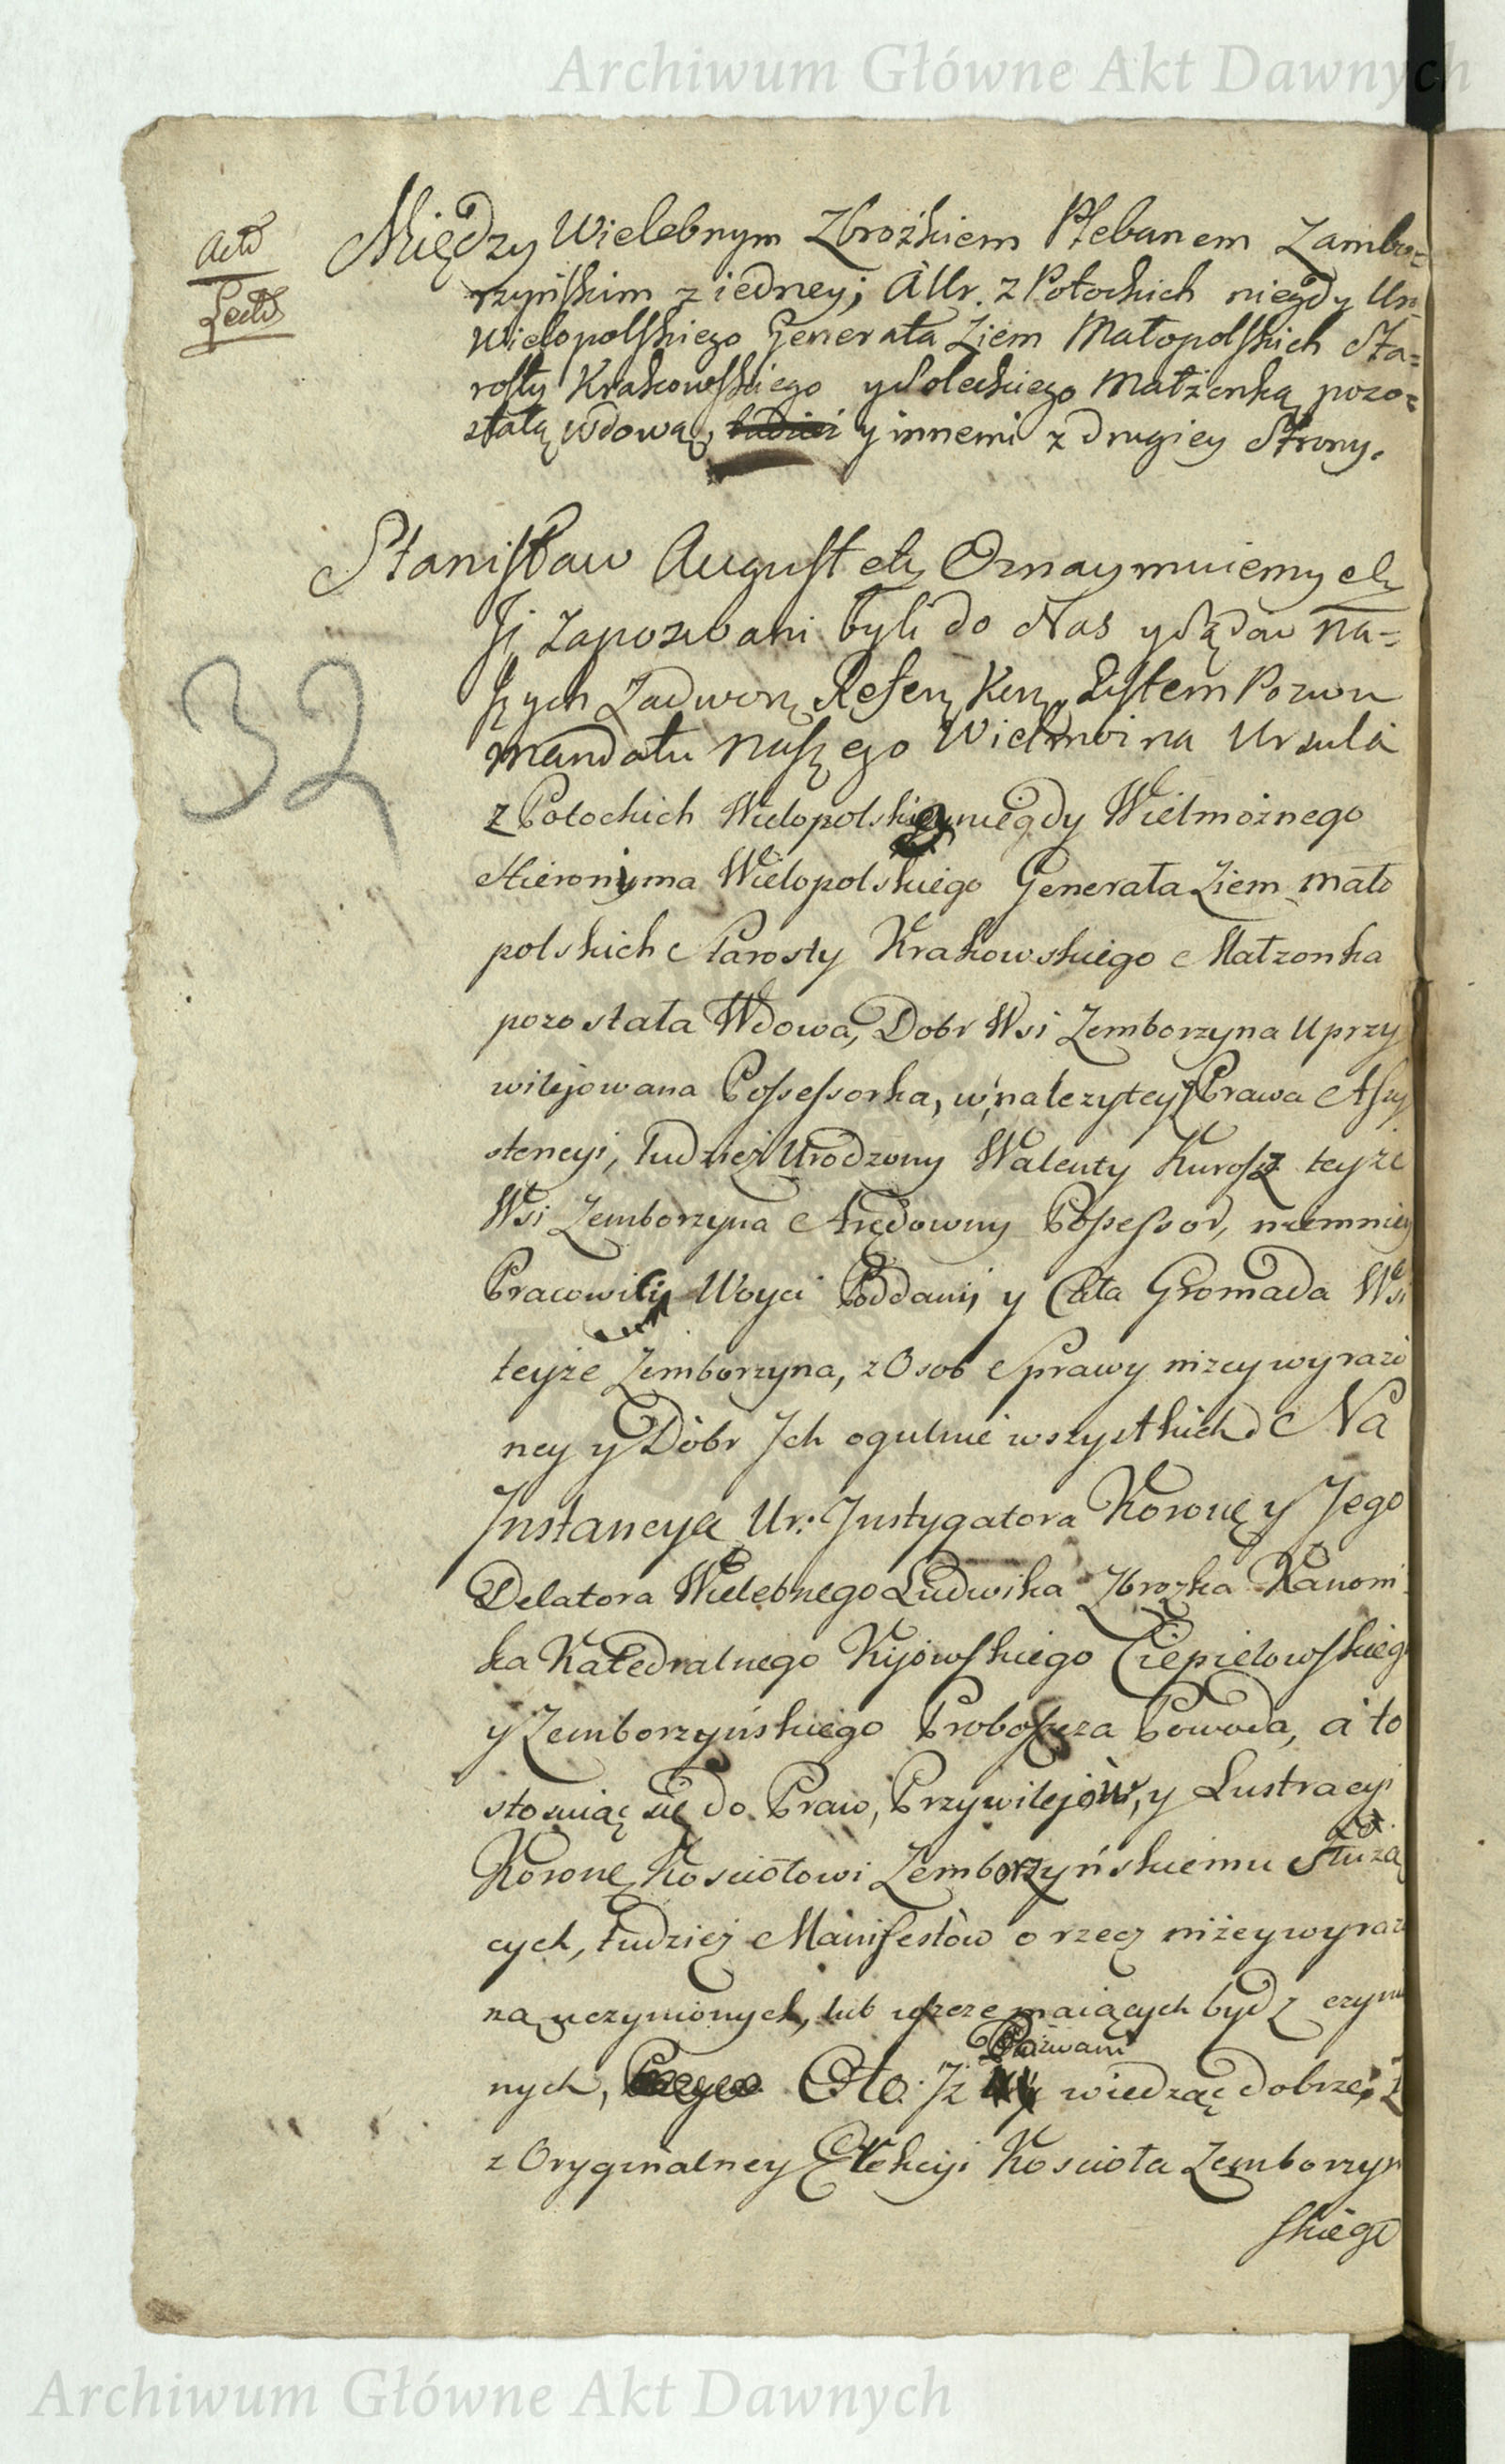 Archiwum Główne Akt Dawnych
Między Wielebnym Zbrożkiem Plebanem Zambo=
rzyńskim z iedney; A Ur. z Potockich niegdy Ur.
Wielopolskiego Generała Ziem Małopolskich Sta=
rosty Krakowskiego y Soleckiego Małżenką pozo=
stałą wdową, y innemi z drugiey Strony.
Stanisław August etz Oznaymuiemy etz
Jż Zapozwani byli do Nas y Sądow Na=
szych Zadwor: Refer: Kor: Listem Pozwu
Mandatu Naszego Wielmożna Ursula
z Potockich Wielopolska niegdy Wielmożnego
Hieronyma Wielopolskiego Generała Ziem Mało
polskich Starosty Krakowskiego Małzonka
pozostała Wdowa, Dobr Wsi Zemborzyna Uprzy
wilejowana Possessorka, w nalezytey Prawa Assy
stencyi, tudzież Urodzony Walenty Kurosz teyże
Wsi Zemborzyna Arędowny Possessor, niemniey
Pracowici Woyci Poddani y Cała Gromada Wsi
teyże Zemborzyna, z Osob Sprawy niżey wyrażo
ney y Dóbr Jch ogulnie wszystkich. Na
Jnstancyą Ur: Jnstygatora Koronę y Jego
Delatora Wielebnego Ludwika Zbrożka Kanoni
ka Katedralnego Kijowskiego Ciepielowskiego
y Zemborzyńskiego Proboszcza Powoda, a to
stosuiąc się do Praw, Przywilejów, y Lustracyi
Koronę Kościołowi Zemborzyńskiemu Służą
cych, tudzież Manifestów o rzecz niżey wyrażo
ną uczynionych, lub ieszcze maiących bydz czynio
nych, Oto: Jż Pozwani wiedząc dobrze, Ż
z Oryginalney Erekcyi Kościoła Zemborzyn
skiego
32
Archiwum Główne Akt Dawnych